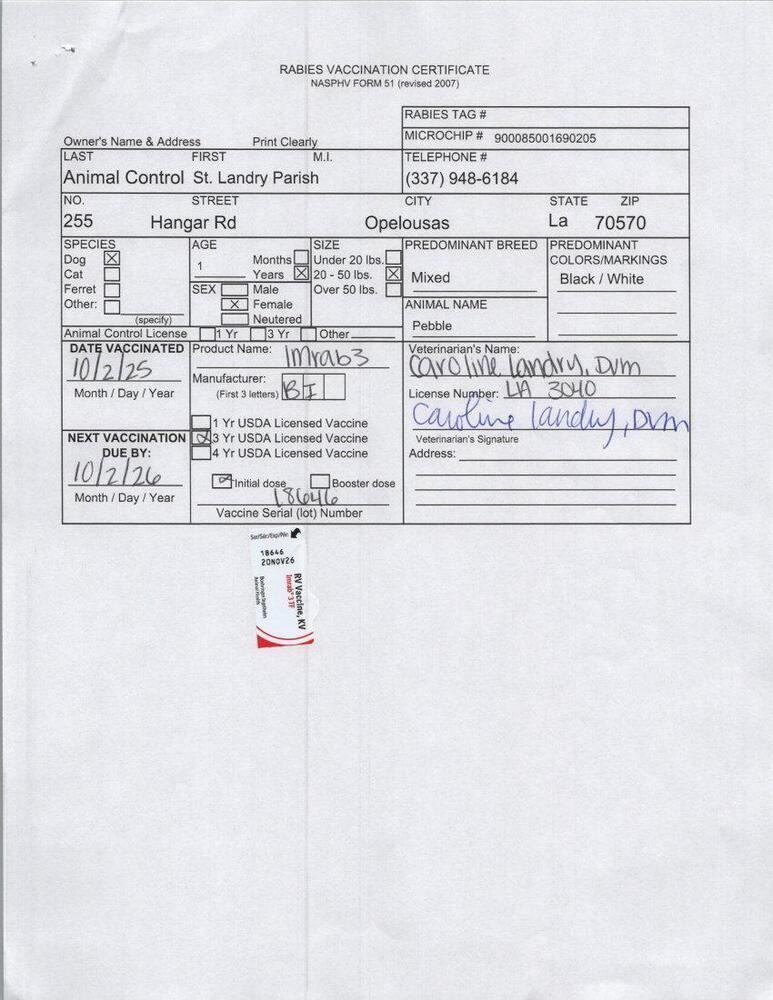 RABIES VACCINATION CERTIFICATE
NASPHV FORM 51 (revised 2007)
RABIES TAG #
MICROCHIP # 900085001690205
Owner's Name & Address Print Clearly
LAST FIRST M.I. TELEPHONE #
Animal Control St. Landry Parish (337) 948-6184
NO. STREET CITY STATE ZIP
255 Hangar Rd Opelousas La 70570
SPECIES AGE SIZE PREDOMINANT BREED PREDOMINANT
Dog X Months Under 20 lbs. COLORS/MARKINGS
Cat 1 Years X 20 - 50 lbs. X Mixed Black / White
Ferret SEX Male Over 50 lbs.
Other: X Female ANIMAL NAME
(specify) Neutered Pebble
Animal Control License 1 Yr 3 Yr Other
DATE VACCINATED Product Name: Imrab3 Veterinarian's Name:
10/2/25 Caroline Landry, DVM
Month / Day / Year Manufacturer: License Number: LA 3040
(First 3 letters) BI
Caroline Landry, DVM
1 Yr USDA Licensed Vaccine
NEXT VACCINATION X 3 Yr USDA Licensed Vaccine Veterinarian's Signature
DUE BY: 4 Yr USDA Licensed Vaccine Address:
10/2/26 Initial dose Booster dose
Month / Day / Year 18646
Vaccine Serial (lot) Number
Ser/Sér/Exp/Nºn
18646
20NOV26
RV Vaccine, KV
Imrab® 3 TF
Boehringer Ingelheim
Animal Health